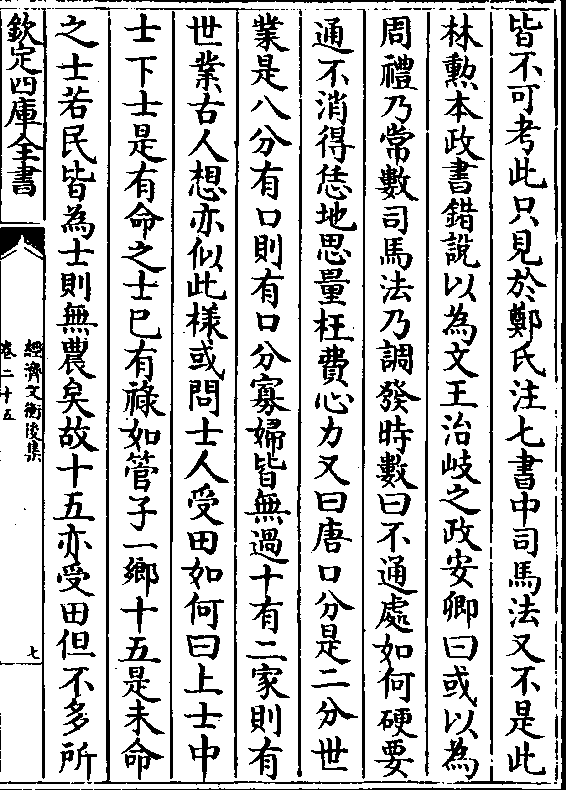 皆不可考此只見於鄭氏注七書中司馬法又不是此
林勲本政書錯說以為文王治岐之政安卿曰或以為
周禮乃常數司馬法乃調發時數曰不通處如何硬要
通不消得恁地思量枉費心力又曰唐口分是二分世
業是八分有口則有口分寡婦皆無過十有二家則有
世業古人想亦似此樣或問士人受田如何曰上士中
士下士是有命之士已有祿如管子一鄉十五是未命
之士若民皆為士則無農矣故十五亦受田但不多所
欽定四庫全書
經濟文衡後集
卷二十五
七